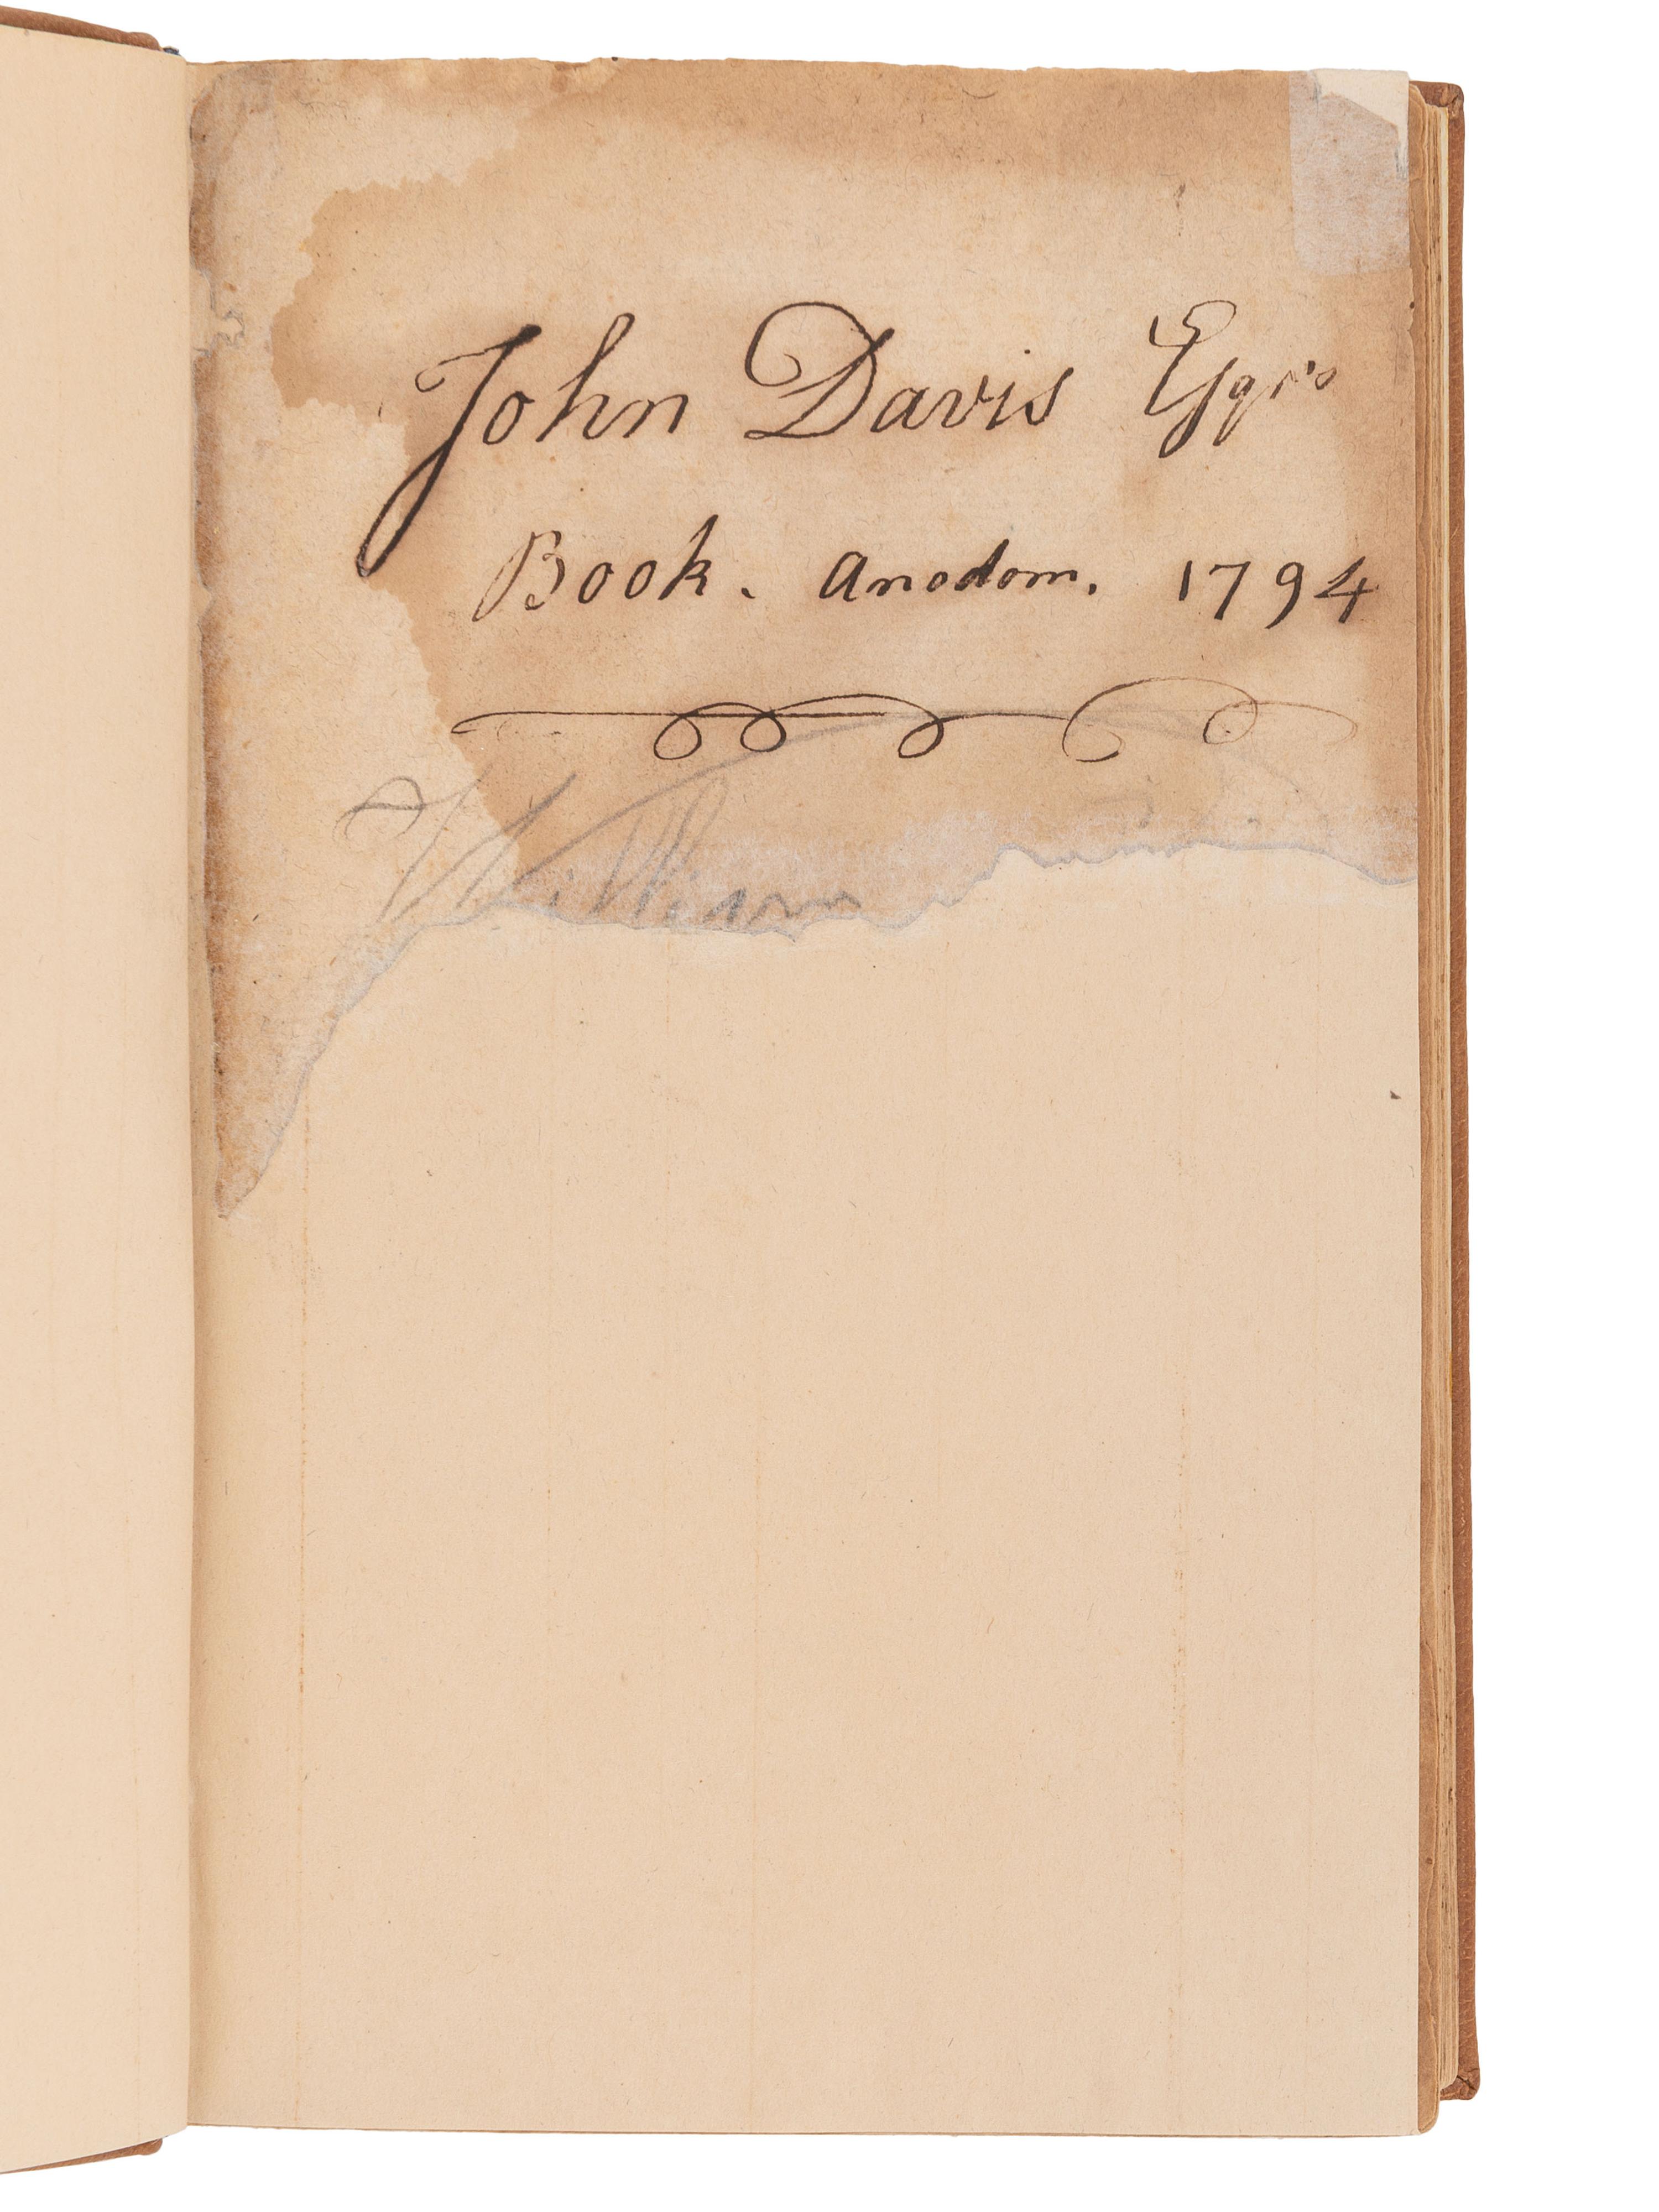 John Davis Esqrs
Book. Anodom. 1794
William